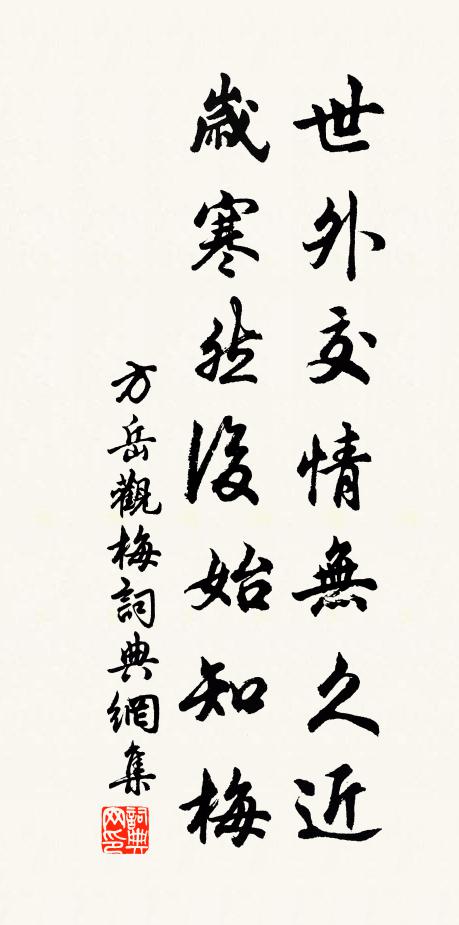 世外交情無久近
歲寒然後始知梅
方岳觀梅詞典網集
詞典網印